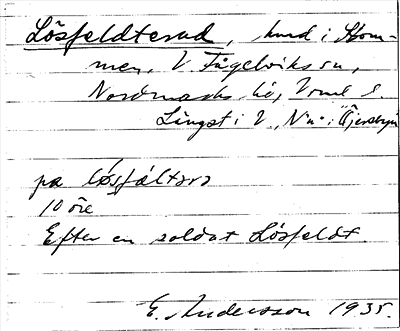 Lösfeldterud, hmd i Hom-
men, V. Fågelviks sn,
Nordmarks hd, Vrml l.
Längst i V, N. i
på løsfæltərə
10 öre
Efter en soldat Lösfeldt.
E. Andersson 1935.